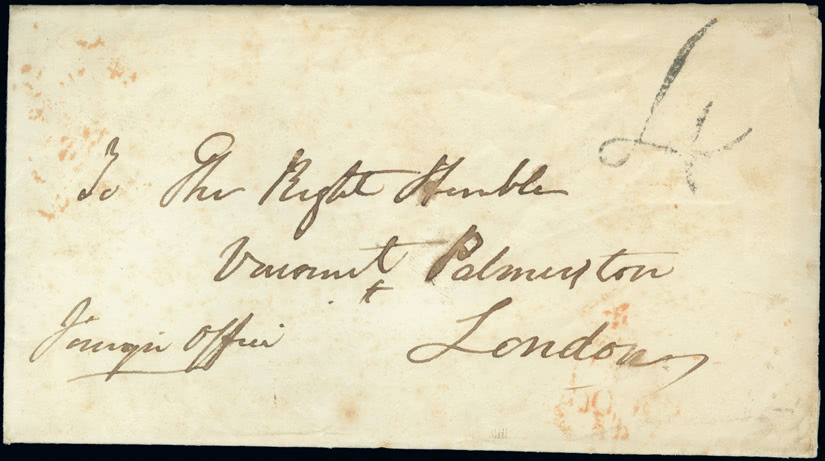 4
To The Right Honble
Viscount Palmerston
London
Foreign Office